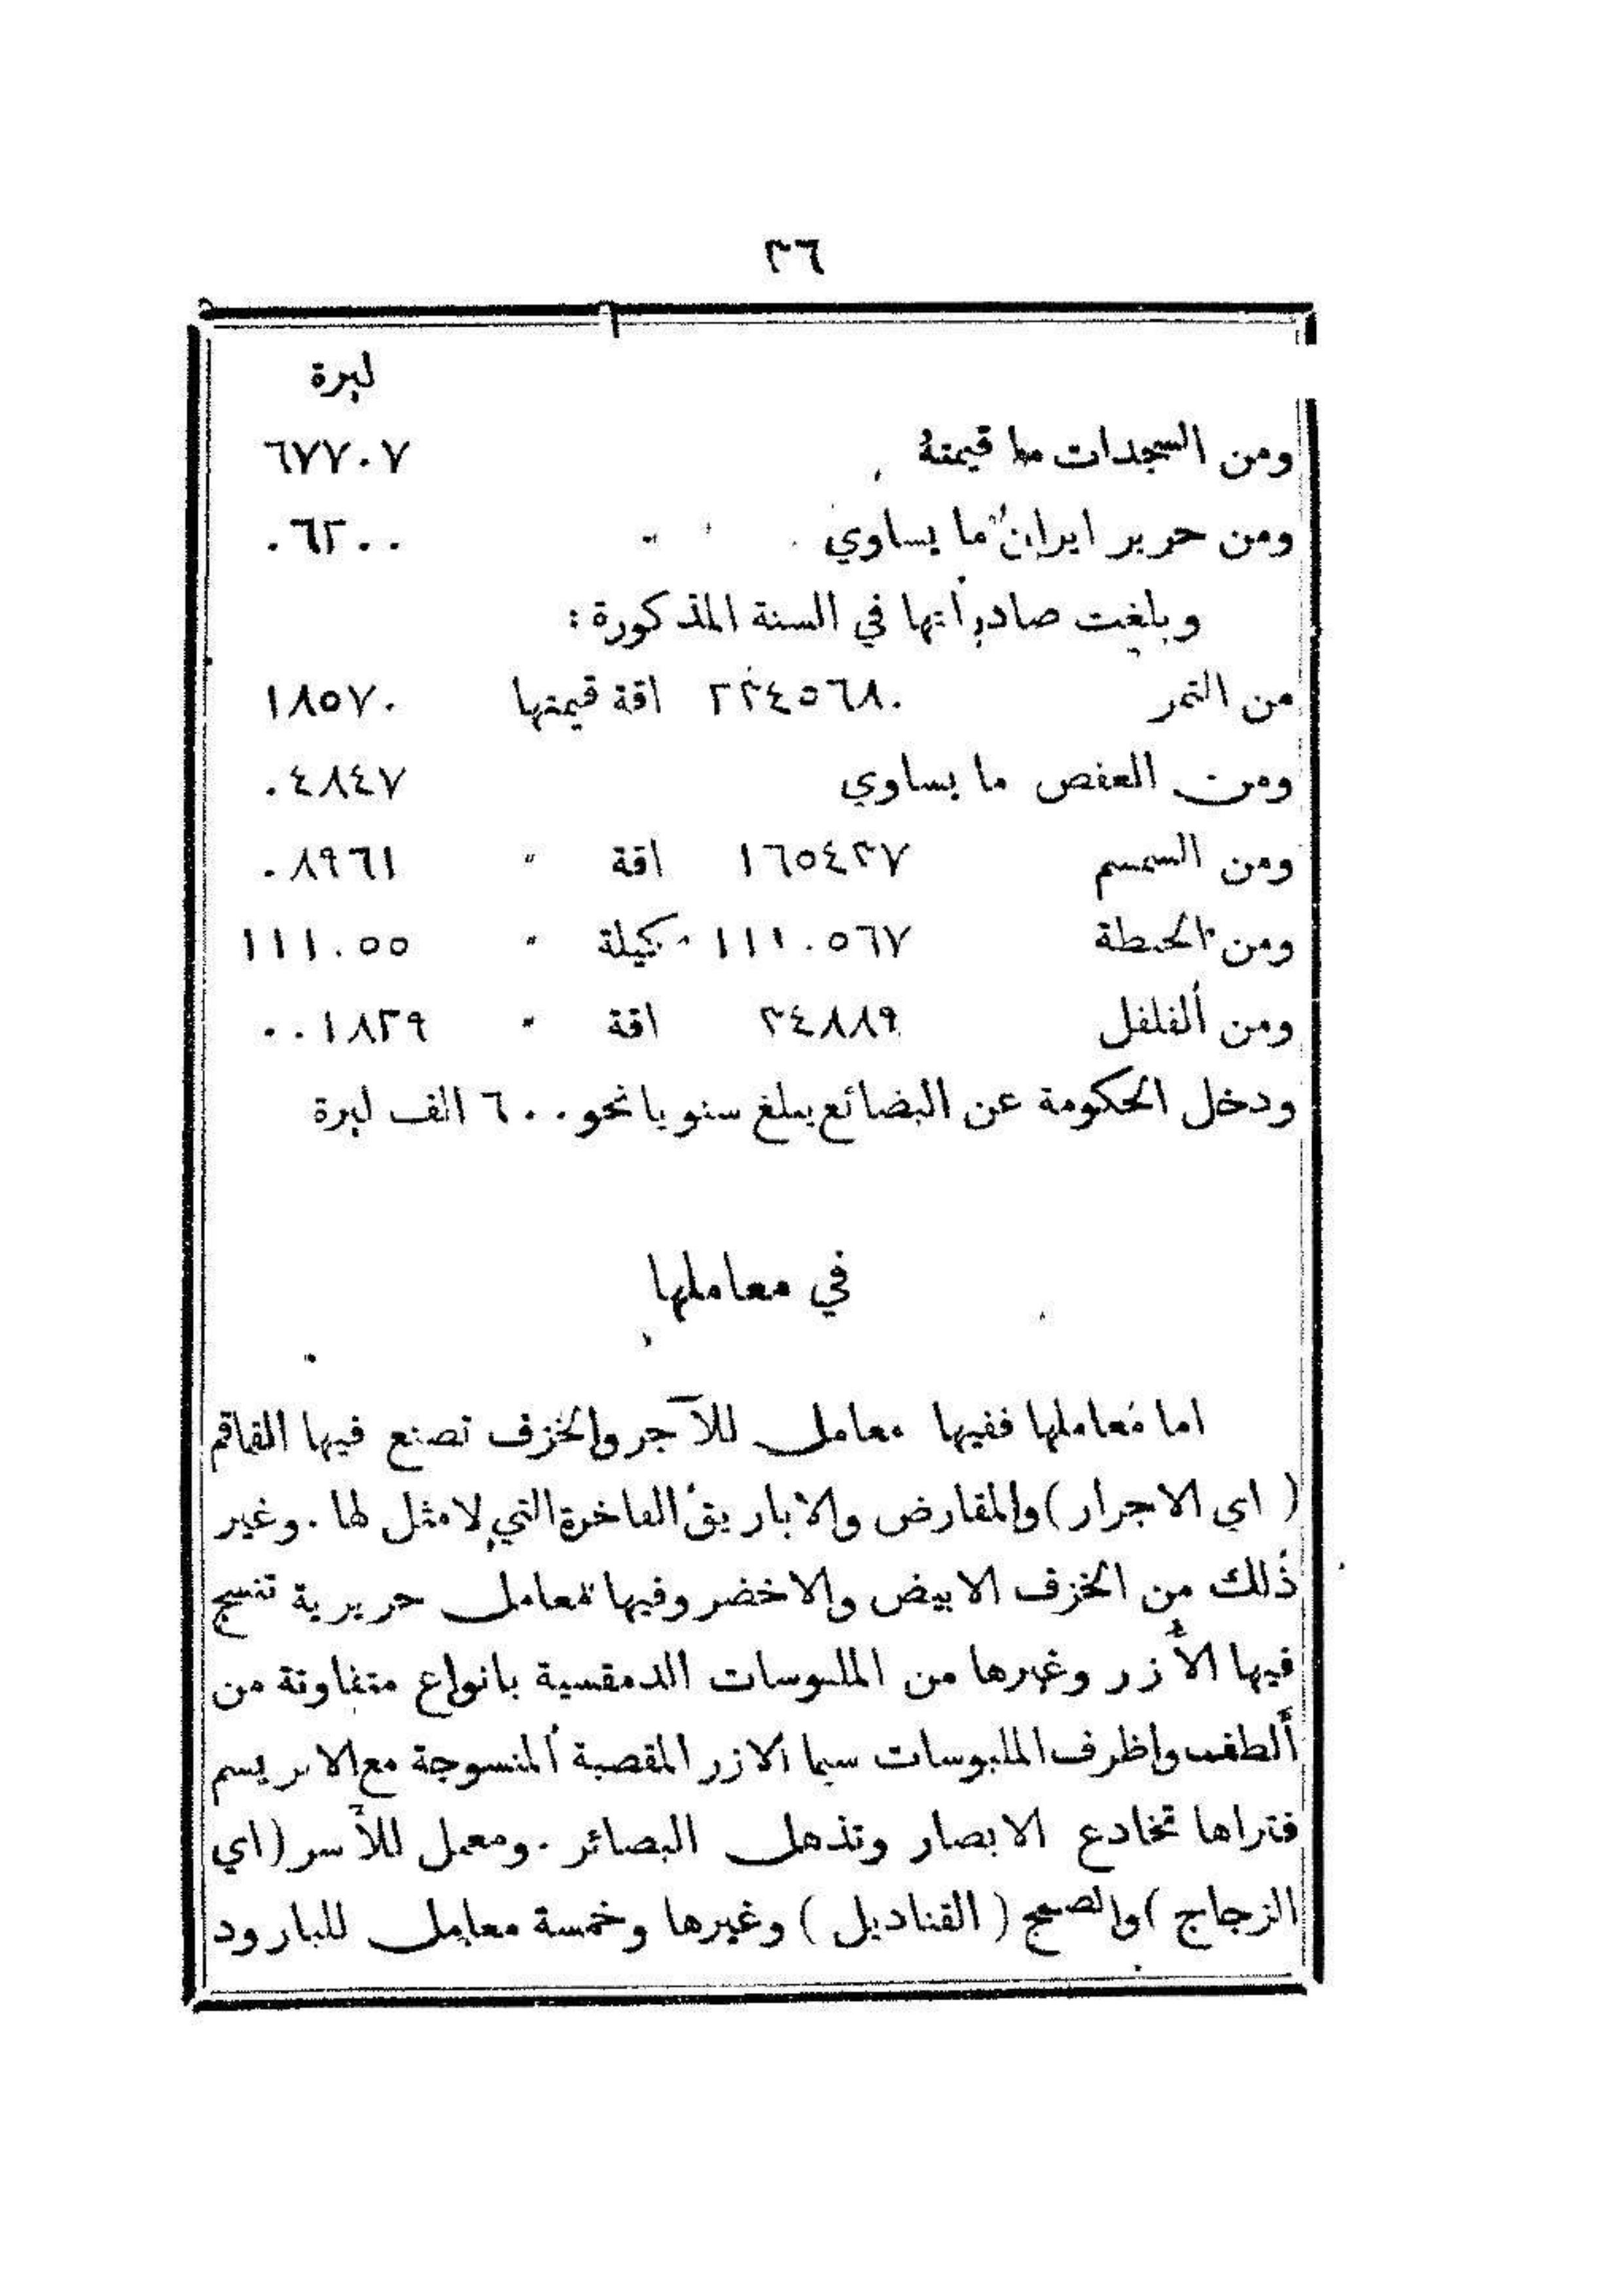 ٣٦
ليرة
ومن السجدات ما قيمتهُ ٦٧٧٠٧
ومن حرير ايران ما يساوي " ٠٦٢٠٠
وبلغت صادراتها في السنة المذكورة :
من التمر ٢٢٤٥٦٨٠ اقة قيمتها ١٨٥٧٠
ومن العفص ما يساوي ٠٤٨٤٧
ومن السمسم ١٦٥٤٣٧ اقة " ٠٨٩٦١
ومن الحنطة ١١١٠٥٦٧ كيلة " ١١١٠٥٥
ومن الفلفل ٣٤٨٨٩ اقة " ٠٠١٨٢٩
ودخل الحكومة عن البضائع يبلغ سنويا نحو ٦٠٠ الف ليرة
في معاملها
اما معاملها ففيها معامل للآجر والخزف تصنع فيها القاقم
( اي الاجرار ) والمقارض والاباريق الفاخرة التي لا مثل لها . وغير
ذلك من الخزف الابيض والاخضر وفيها معامل حريرية تنسج
فيها الأزر وغيرها من الملبوسات الدمقسية بانواع متفاوتة من
ألطف واظرف الملبوسات سيما الازر المقصبة المنسوجة مع الابريسم
فتراها تخادع الابصار وتذهل البصائر . ومعمل للأسر ( اي
الزجاج ) والصمج ( القناديل ) وغيرها وخمسة معامل للبارود